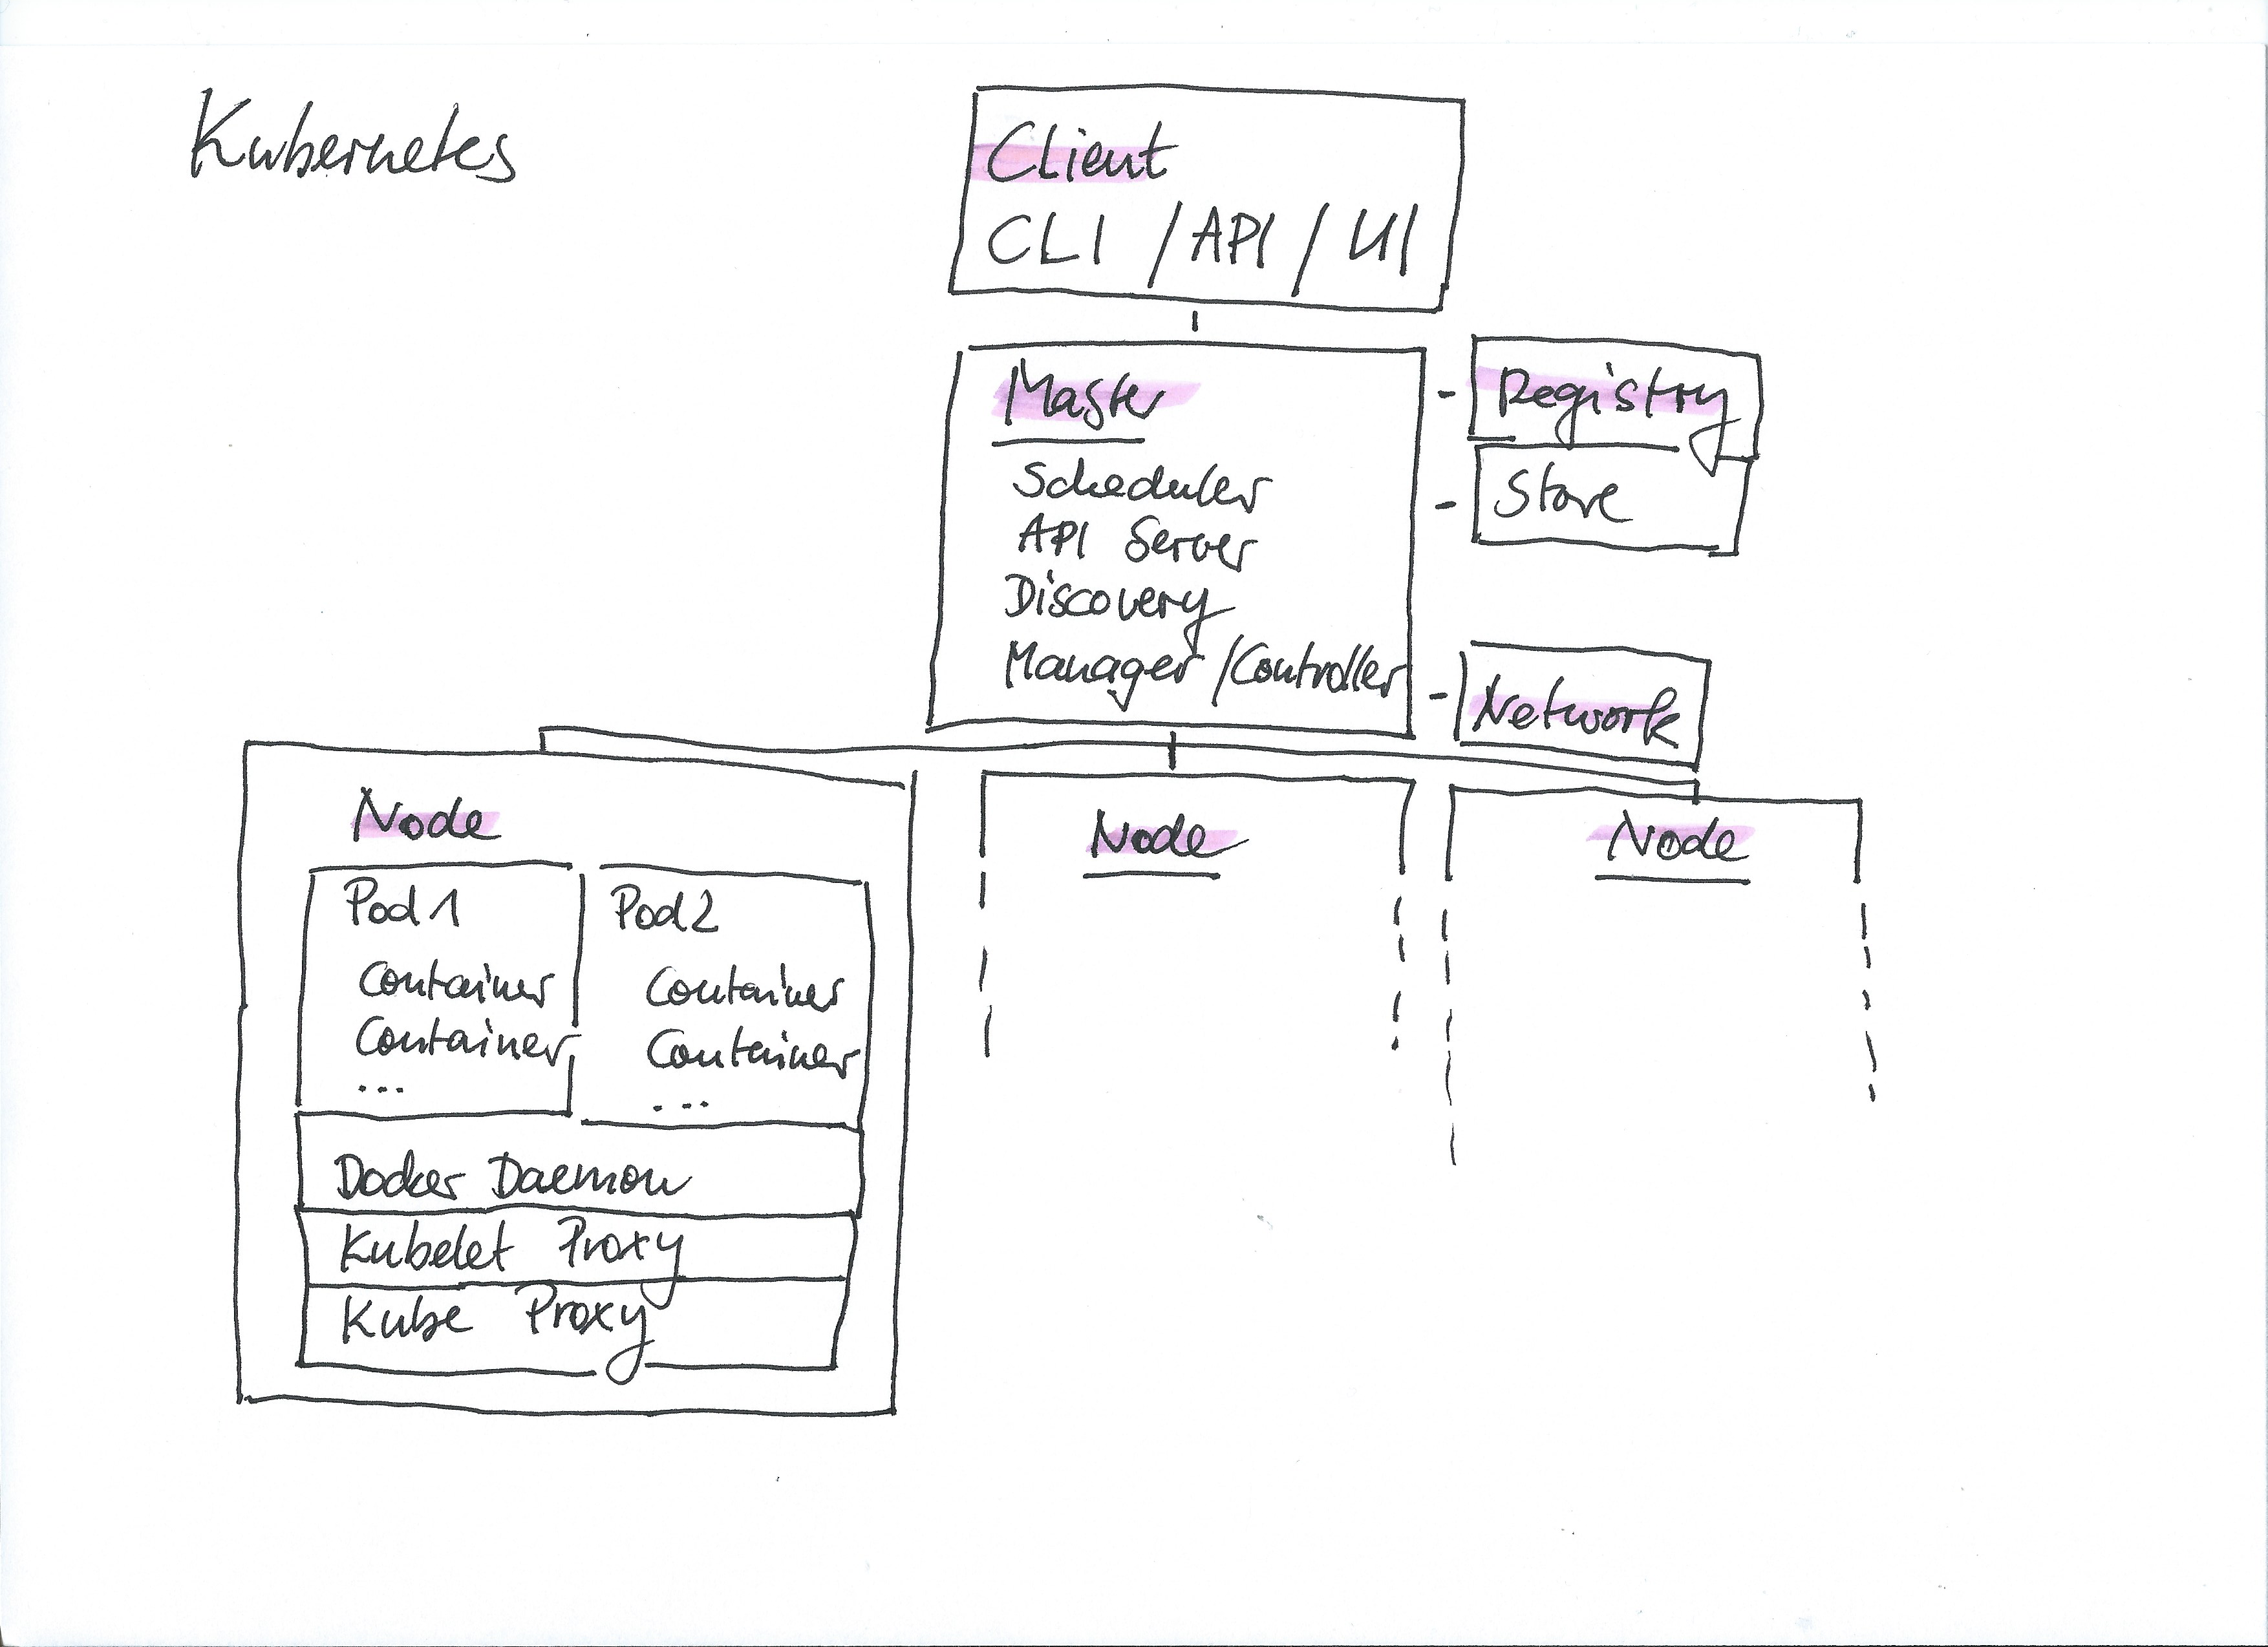 Kubernetes
Client
CLI / API / UI
Master
Scheduler
API Server
Discovery
Manager / Controller
Registry
Store
Network
Node
Pod 1
Container
Container
...
Pod 2
Container
Container
...
Docker Daemon
Kubelet Proxy
Kube Proxy
Node
Node